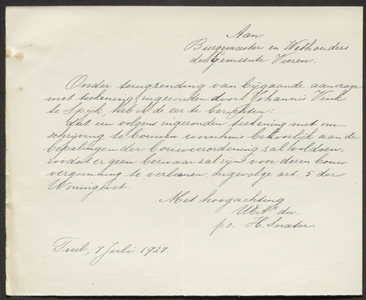 Aan
Burgemeester en Wethouders
der Gemeente Vuren.
Onder terugzending van bijgaande aanvrage
met teekening, ingezonden door Johannis Vink
te Spijk, heb ik de eer te berichten
dat een volgens ingezonden teekening met om-
schrijving te bouwen woonhuis behoorlijk aan de
bepalingen der bouwverordening zal voldoen,
zoodat er geen bezwaar zal zijn voor dezen bouw
vergunning te verleenen, ingevolge art. 5 der
Woningwet.
Met hoogachting
UEA dw.
p.o. H.
Tiel, 7 Juli 1927.